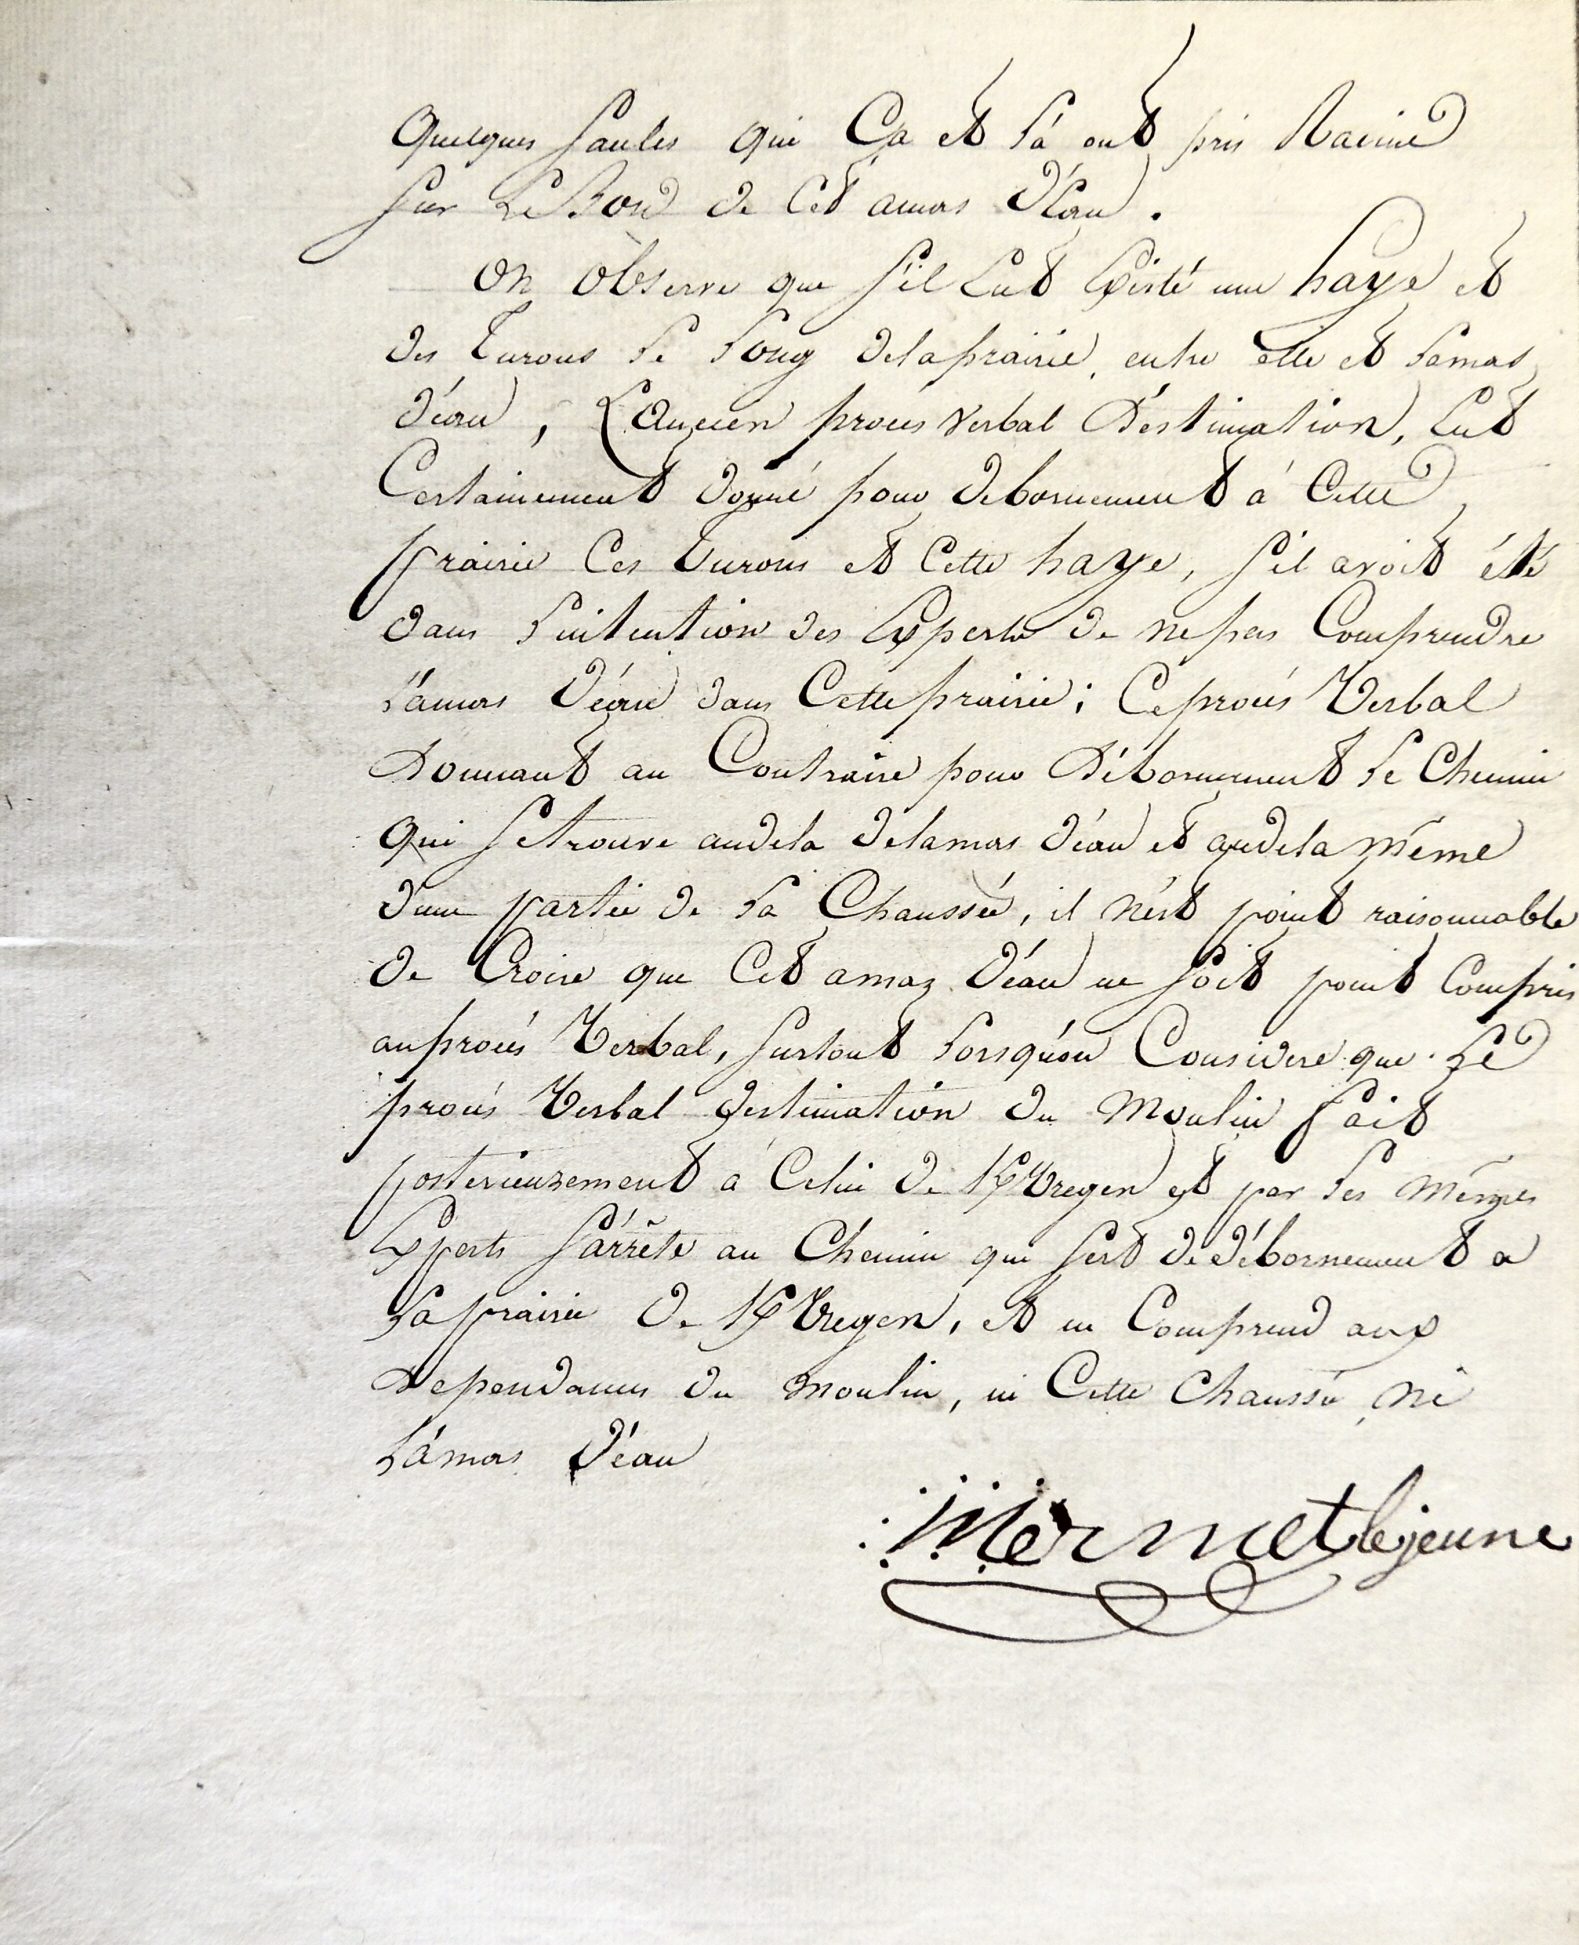 Quelques saules qui Ça et là ont pris Racine
sur Le Bord de Cet amas d'Eau.
On observe que s'il Eut Existé une haye et
des turons le long delaprairie, entre elle et Lamas
d'éau, L'ancien procés verbal d'estimation, Eut
Certainement donné pour debornement à Cette
prairie Ces turons et Cette haye, s'il avoit été
dans l'intention des Experts de nepas Comprendre
L'amas d'éau dans Cette prairie; Ce procés Verbal
donnant au Contraire pour débornement le Chemin
qui se trouve audela delamas d'éau et audela même
d'une partie de la Chaussée, il n'est point raisonnable
de Croire que Cet amaz d'éau ne soit point Compris
au procés Verbal, surtout lorsqu'on Considere que Le
procés Verbal destimation du Moulin fait
posterieurement à Celui de Kertregen et par les mêmes
Experts s'arrête au Chemin qui sert de débornement a
la prairie de Kertregen, et ne Comprend aux
dependances du moulin, ni Cette Chaussée, ni
L'amas d'éau
Mermet lejeune